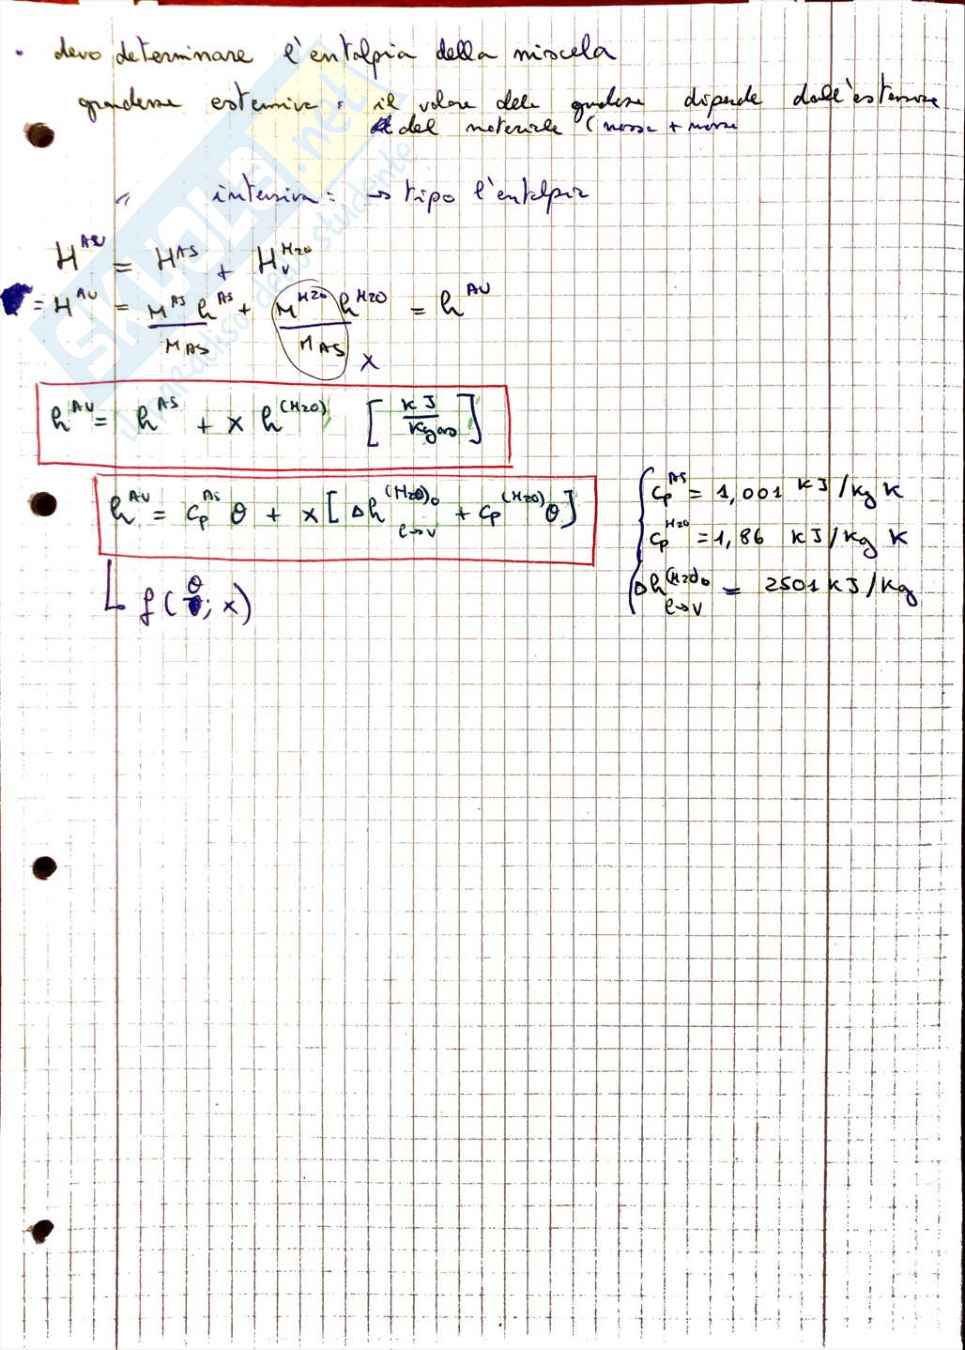 • devo determinare l'entalpia della miscela
grandezze estensive = il valore delle grandezze dipende dall'estensione
del materiale (massa + massa
" intensiva = → tipo l'entalpia
H^AU = H^AS + H_V^H2O
= H^AU = M^AS h^AS / M_AS + M^H2O h^H2O / M_AS = h^AU
x
h^AU = h^AS + x h^(H2O) [kJ/kg as]
h^AU = c_p^AS θ + x [Δh_l→v^(H2O)0 + c_p^(H2O) θ]
c_p^AS = 1,001 kJ/kg K
c_p^H2O = 1,86 kJ/kg K
Δh_l→v^(H2O)0 = 2501 kJ/kg
f(θ; x)
SKUOLA.net
il paradiso dello studente